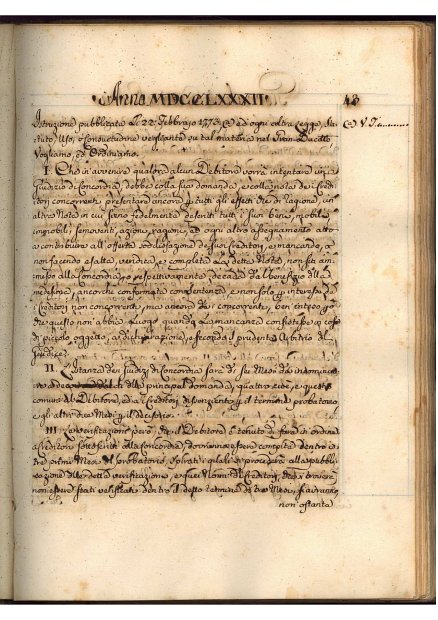 Anno MDCCLXXXII
48
Istruzione pubblicata il 22: Febbrajo 1773 (a) ed ogni altra Legge, Sta-
(a) V. T.
tuto, Uso, o Consuetudine vegliante su tal materia nel Gran Ducato
Vogliamo, ed Ordiniamo.
I. Che in avvenire qualora alcun Debitore vorrà intentare un
Giudizio di Concordia, debba colla sua domanda, e colla nota dei Credi-
tori concorrenti presentare ancora per tutti gli effetti di ragione, un
altra Nota in cui sieno fedelmente descritti tutti i suoi beni, mobili,
immobili, semoventi, azioni, ragioni, ed ogni altro assegnamento atto
a contribuire all' offerta soddisfazione de suoi Creditori, e mancando, o
non facendo esatta, veridica, e completa la detta Nota non sia am-
messo alla Concordia, o respettivamente decada dal benefizio della
medesima, ancorchè confermata con sentenza, e non solo per interesse dei
Creditori non concorrenti, ma ancora dei concorrenti, ben inteso però
che questo non abbia luogo quando la mancanza consistesse in cose
di piccolo oggetto, a dichiarazione, e secondo il prudente Arbitrio del
Giudice.
II. L' Istanza dei Giudizi di Concordia sarà di sei Mesi da
dì della principal domanda, quattro
comuni al Debitore, ed a Creditori servi per il termine probatorio
e gli altri due Mesi per il decisorio.
III. La verificazione però che il Debitore è tenuto di fare in ordine
a Creditori alla Concordia dovrà essere compita dentro i
tre primi Mesi del probatorio, spirati i quali si procederà alla pubbli-
cazione della detta verificazione, e quei Nomi di Creditori, che si trovassero
non essere stati verificati dentro il detto termine di tre Mesi,
non' ostante